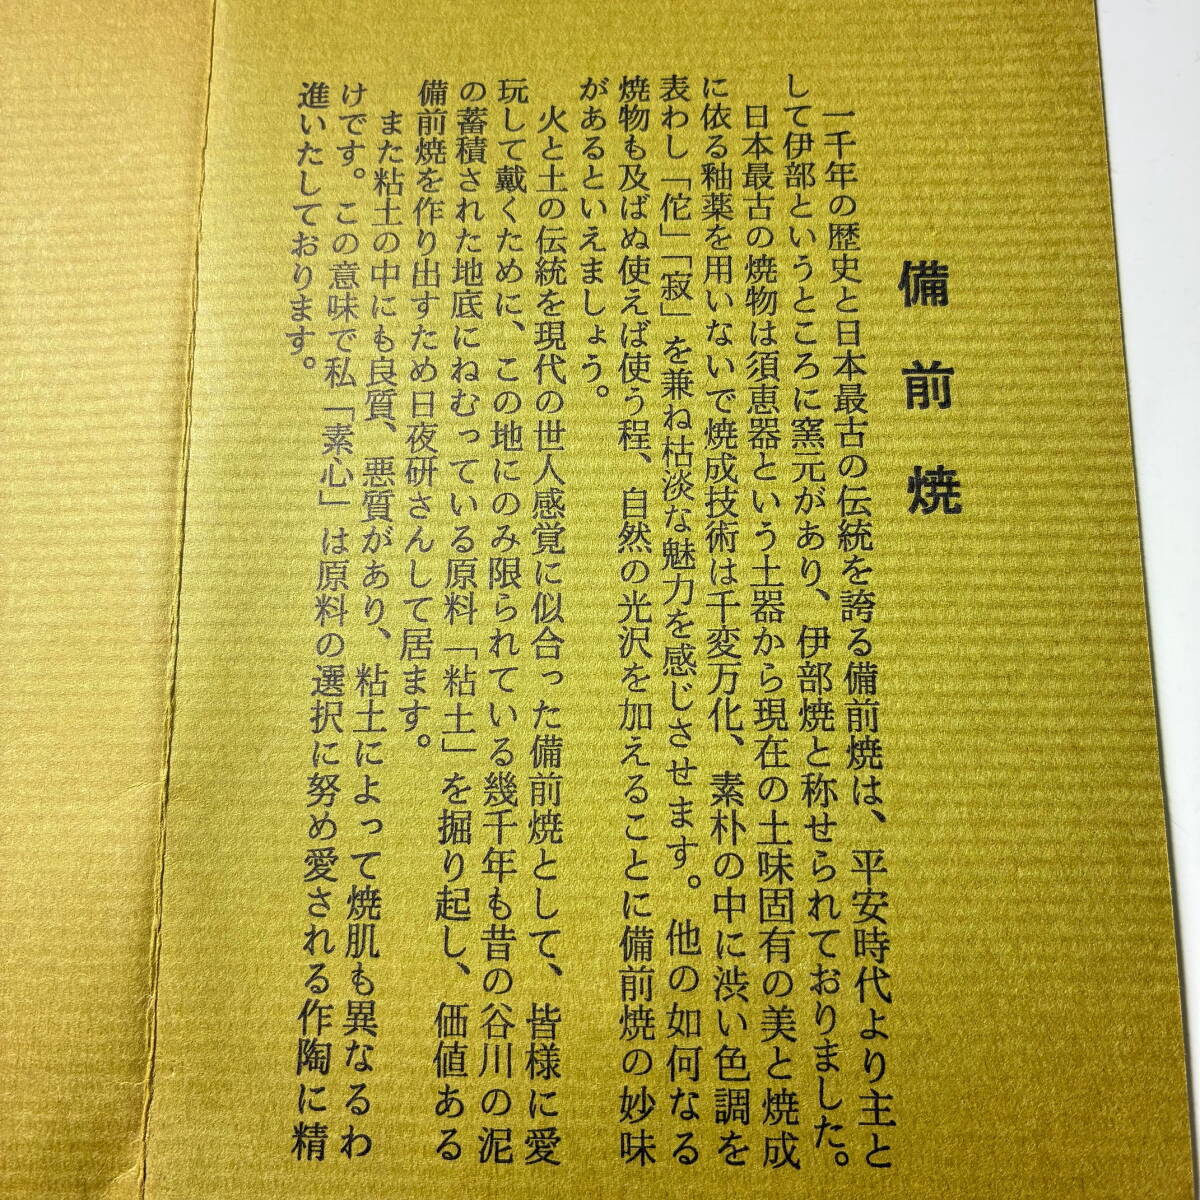 備前焼
一千年の歴史と日本最古の伝統を誇る備前焼は、平安時代より主と
して伊部というところに窯元があり、伊部焼と称せられておりました。
日本最古の焼物は須恵器という土器から現在の土味固有の美と焼成
に依る釉薬を用いないで焼成技術は千変万化、素朴の中に渋い色調を
表わし「佗」「寂」を兼ね枯淡な魅力を感じさせます。他の如何なる
焼物も及ばぬ使えば使う程、自然の光沢を加えることに備前焼の妙味
があるといえましょう。
火と土の伝統を現代の世人感覚に似合った備前焼として、皆様に愛
玩して戴くために、この地にのみ限られている幾千年も昔の谷川の泥
の蓄積された地底にねむっている原料「粘土」を掘り起し、価値ある
備前焼を作り出すため日夜研さんして居ます。
また粘土の中にも良質、悪質があり、粘土によって焼肌も異なるわ
けです。この意味で私「素心」は原料の選択に努め愛される作陶に精
進いたしております。